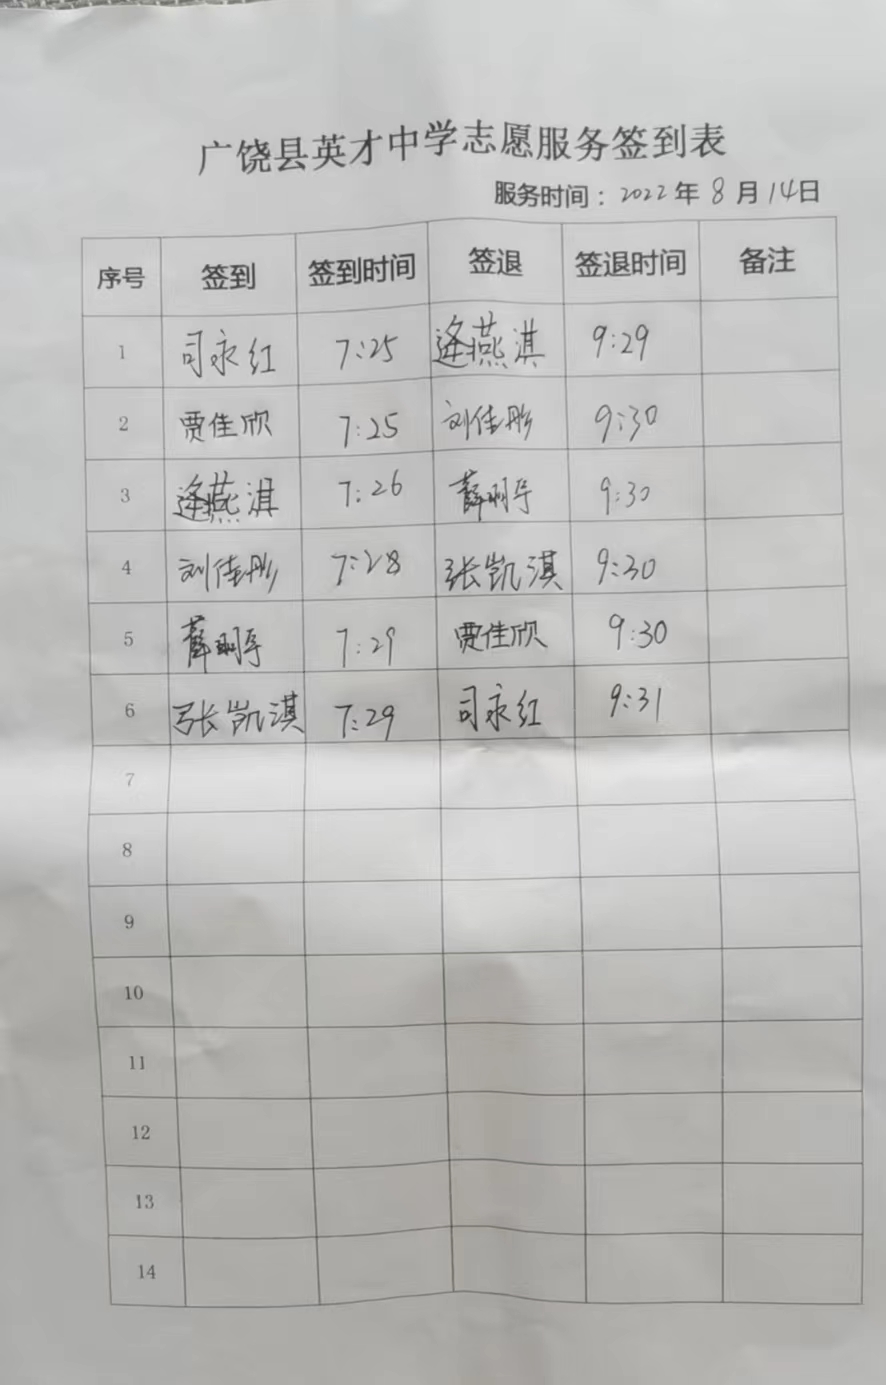 广饶县英才中学志愿服务签到表
服务时间：2022年8月14日
序号 签到 签到时间 签退 签退时间 备注
1 司永红 7:25 逄燕淇 9:29
2 贾佳欣 7:25 刘佳彤 9:30
3 逄燕淇 7:26 薛明宇 9:30
4 刘佳彤 7:28 张凯淇 9:30
5 薛明宇 7:29 贾佳欣 9:30
6 张凯淇 7:29 司永红 9:31
7
8
9
10
11
12
13
14